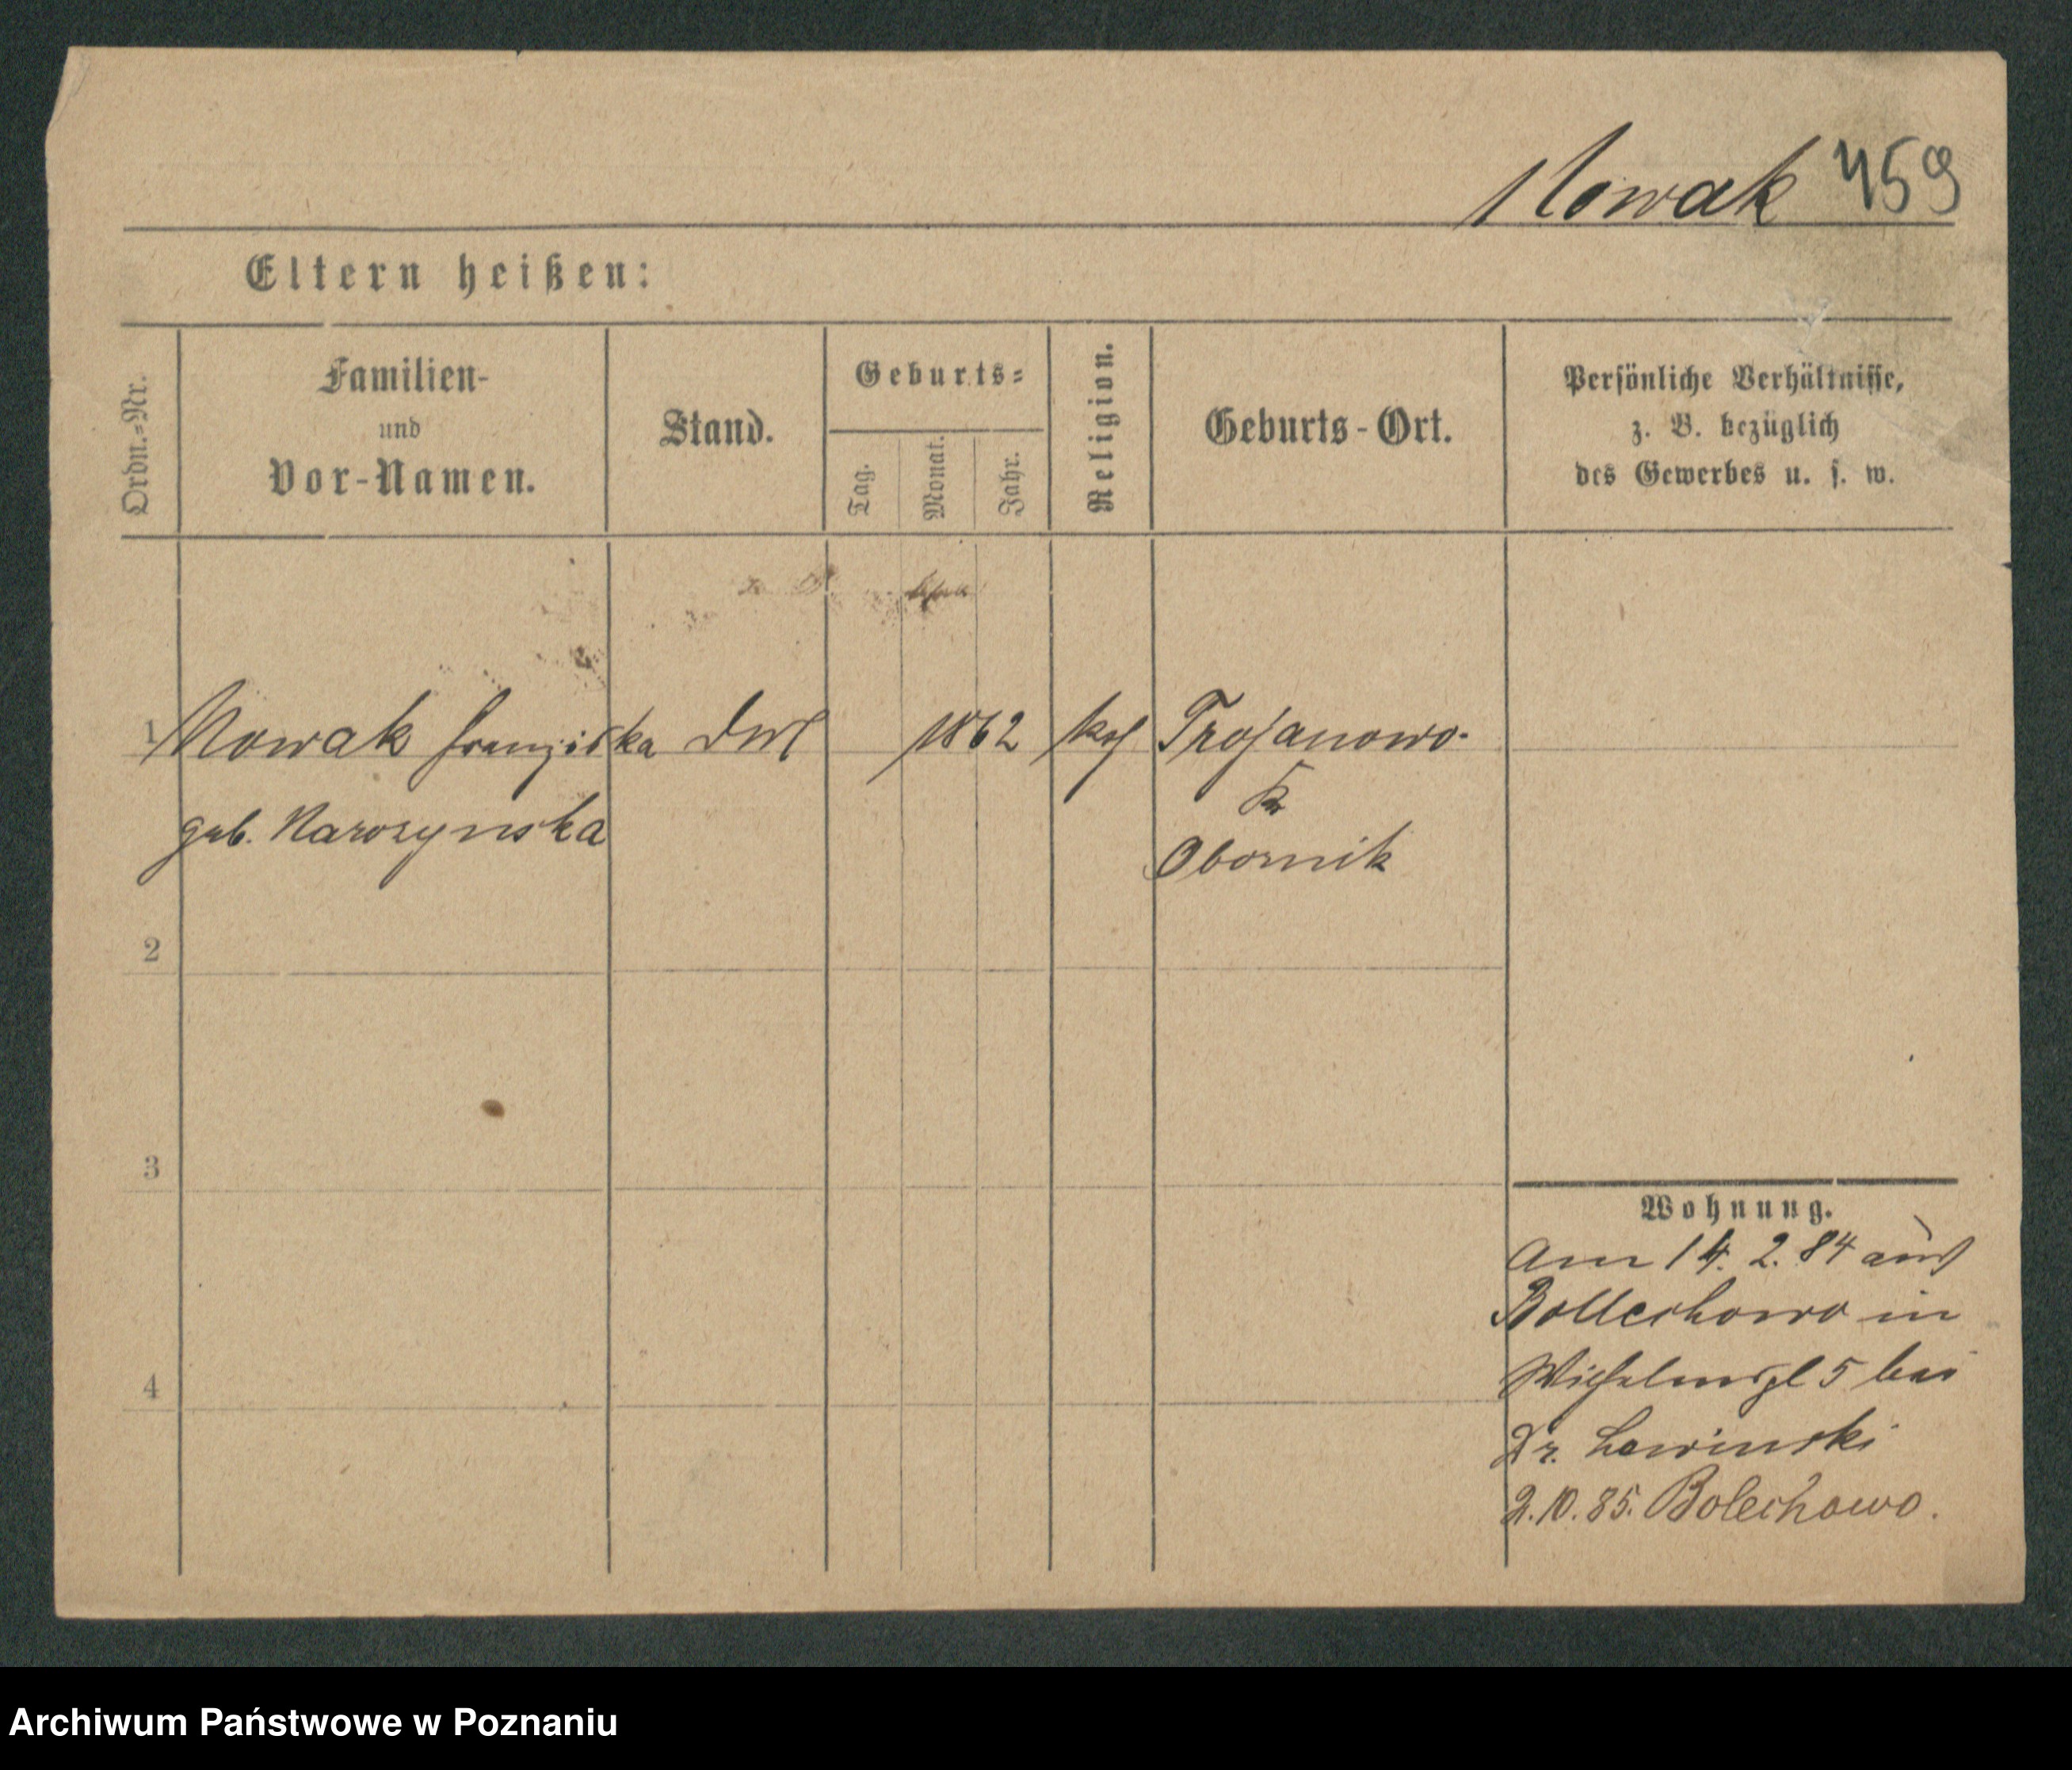 Nowak 459
Eltern heißen:
Ordn.=Nr.
Familien-
und
Vor-Namen.
Stand.
Geburts=
Tag.
Monat.
Jahr.
Religion.
Geburts-Ort.
Persönliche Verhältnisse,
z. B. bezüglich
des Gewerbes u. s. w.
1 Nowak Franziska 1862 Trojanowo
geb. Narozynska
Kr
Obornik
2
3
4
Wohnung.
Am 14. 2. 84 aus
Bollechowo in
Wilhelmspl 5 bei
Dr. Lewinski
2.10.85. Bolechowo.
Archiwum Państwowe w Poznaniu